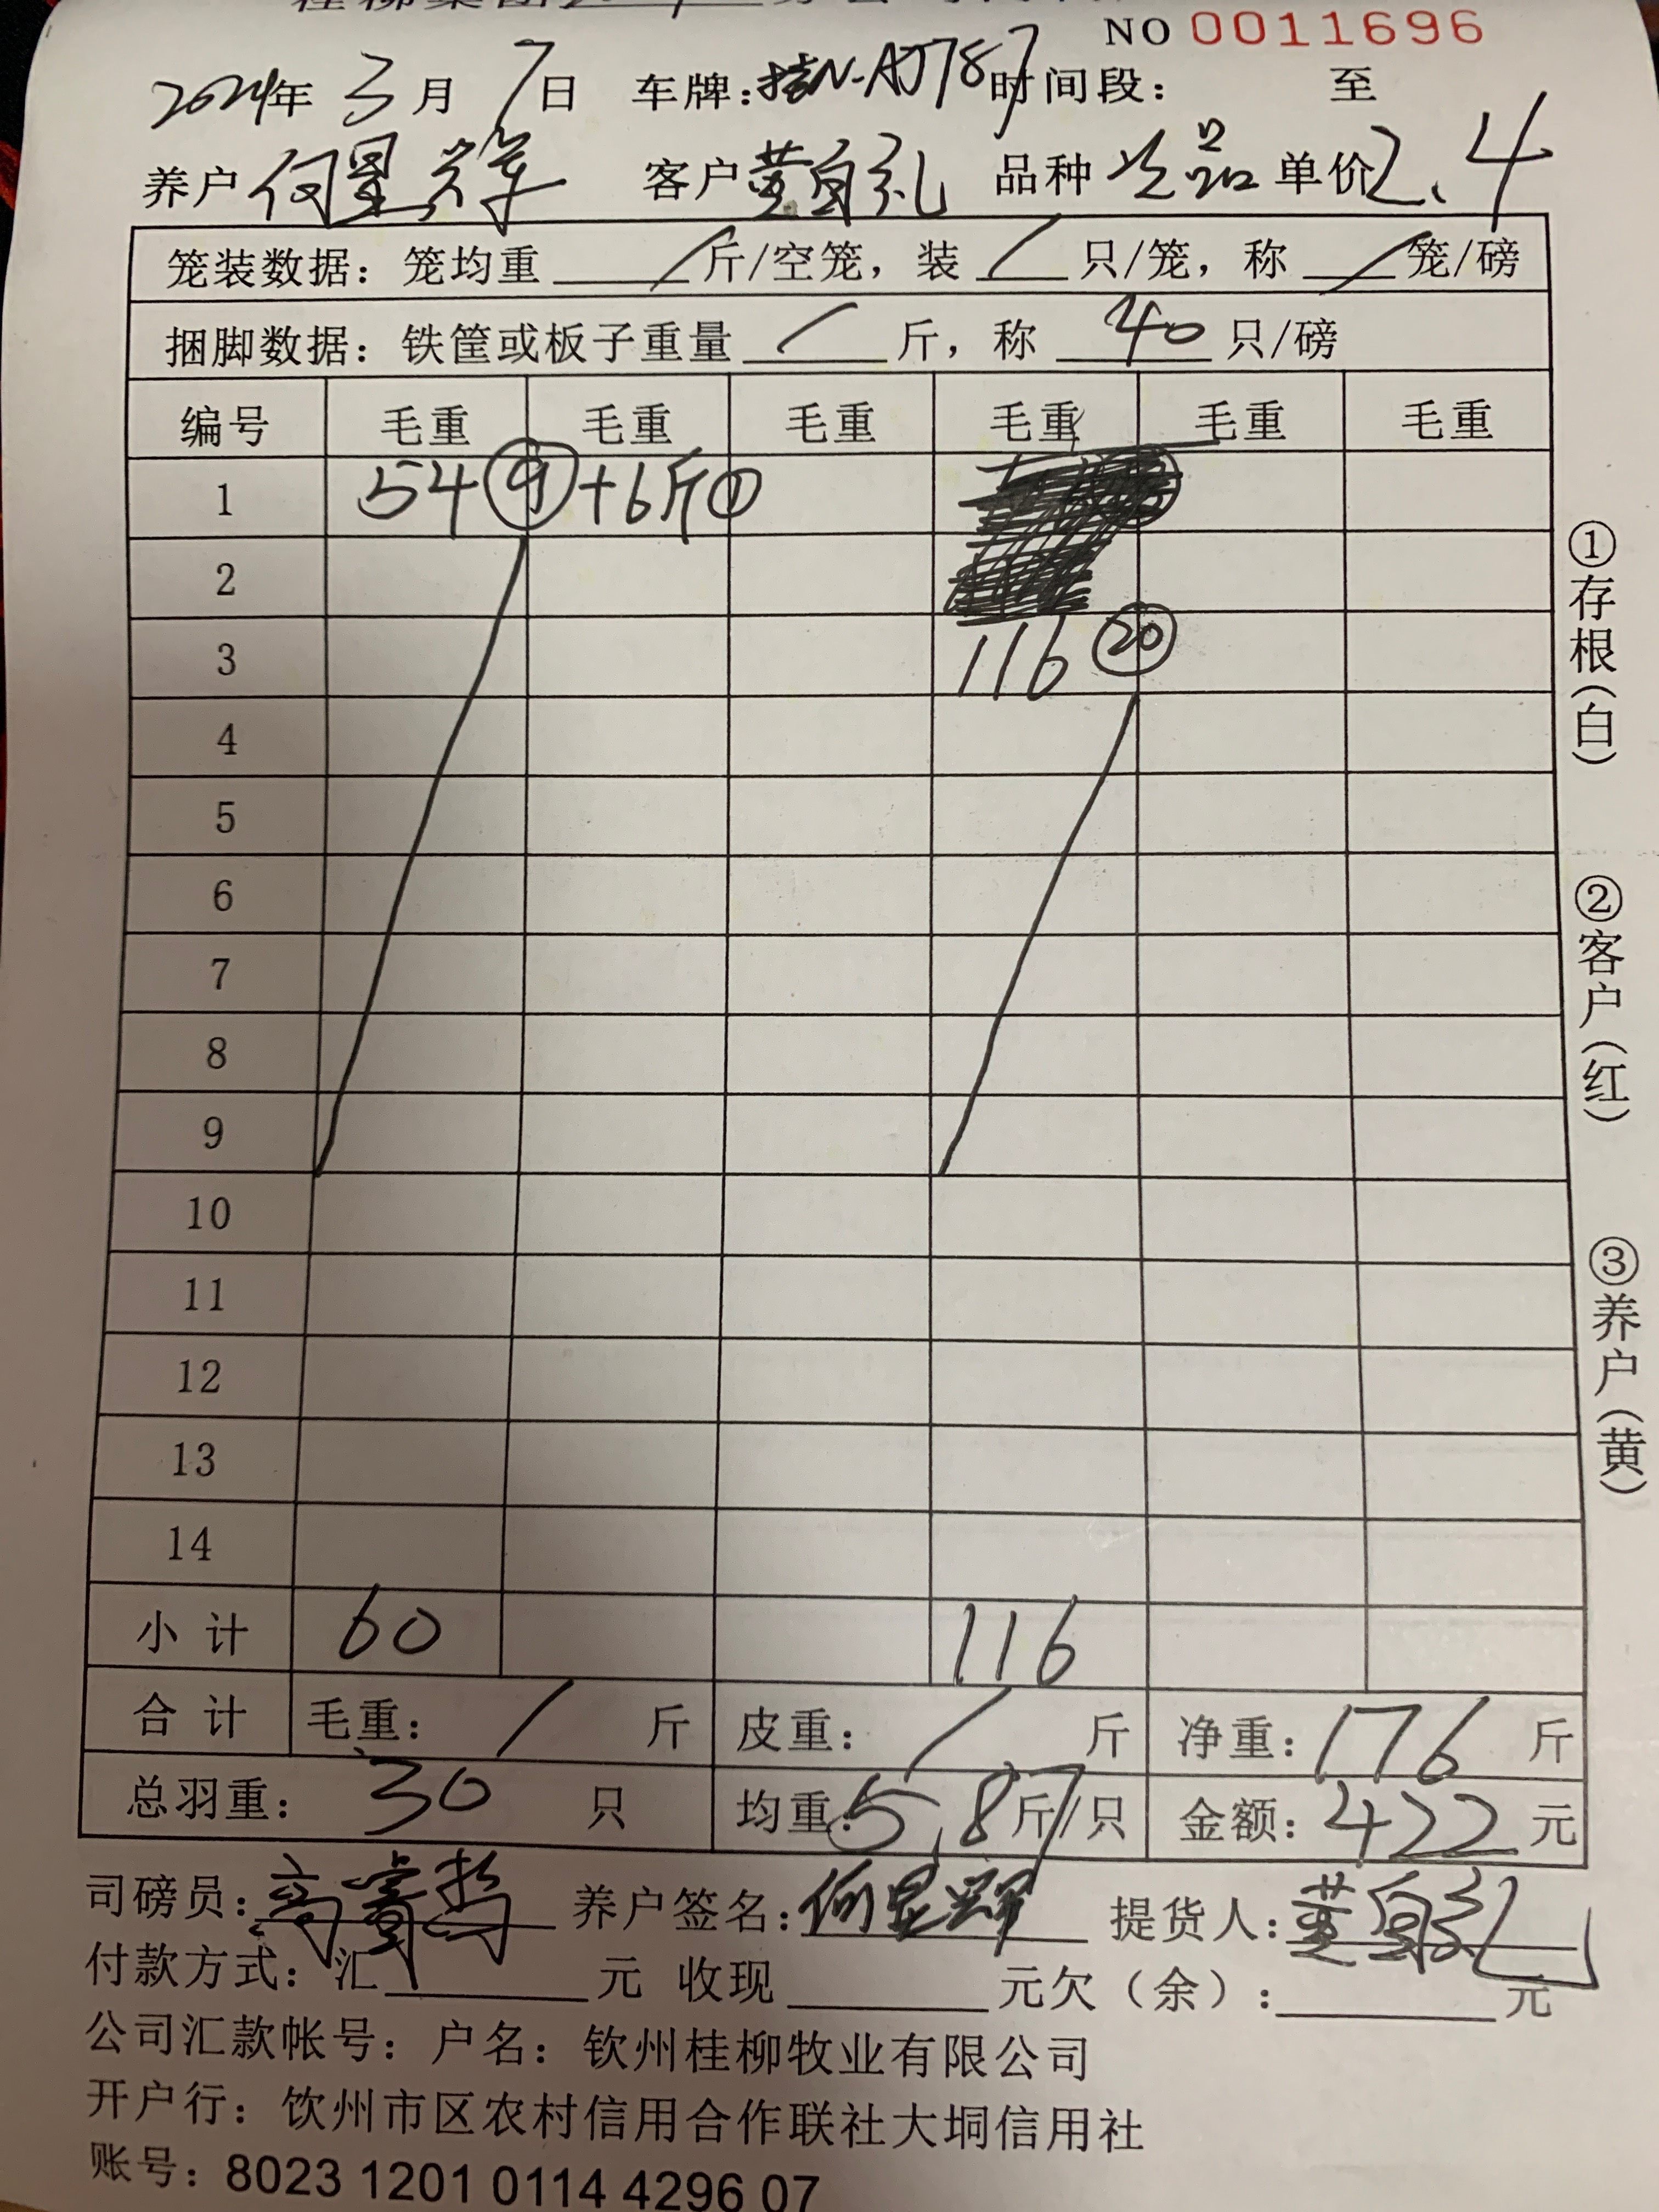 NO 0011696
2024年 3月 7日 车牌:桂N-AJ787 时间段: 至
养户 何显辉 客户 黄自礼 品种 次品 单价 2.4
笼装数据: 笼均重 / 斤/空笼, 装 / 只/笼, 称 / 笼/磅
捆脚数据: 铁筐或板子重量 / 斤, 称 40 只/磅
编号 毛重 毛重 毛重 毛重 毛重 毛重
1 54 ⑨ +6斤①
2
3 116 ⑳
4
5
6
7
8
9
10
11
12
13
14
小计 60 116
合计 毛重: / 斤 皮重: / 斤 净重: 176 斤
总羽重: 30 只 均重: 5.87 斤/只 金额: 422 元
司磅员: 养户签名: 何显辉 提货人: 黄自礼
付款方式: 汇 元 收现 元欠(余): 元
公司汇款帐号: 户名: 钦州桂柳牧业有限公司
开户行: 钦州市区农村信用合作联社大垌信用社
账号: 8023 1201 0114 4296 07
①存根(白)
②客户(红)
③养户(黄)